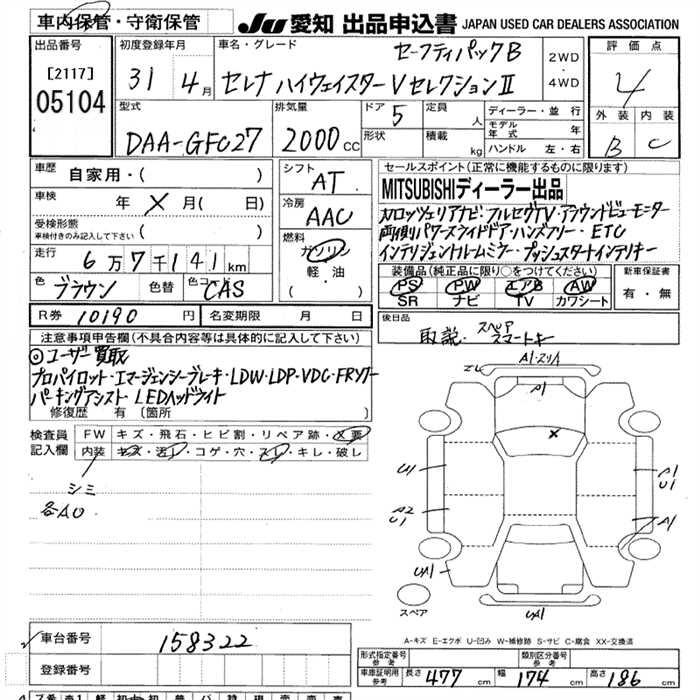 車内保管・守衛保管
JU 愛知 出品申込書 JAPAN USED CAR DEALERS ASSOCIATION
出品番号
[2117]
05104
初度登録年月
31 4月
車名・グレード
セーフティパックB
セレナ ハイウェイスターVセレクションⅡ
2WD
・
4WD
評価点
4
外装 内装
B C
型式
DAA-GFC27
排気量
2000 CC
ドア
5
形状
定員
人
積載
kg
ディーラー・並行
モデル年式 年
ハンドル 左・右
車歴
自家用・( )
車検
年 × 月( 日)
受検形態
車検付きのみ記入して下さい ( )
走行
6万7千141km
色
ブラウン
色替
色コード
CAS
R券 10190 円
名変期限 月 日
シフト
AT
冷房
AAC
燃料
ガソリン
軽・油
( )
セールスポイント(正常に機能するものに限ります)
MITSUBISHIディーラー出品
カロッツェリアナビ・フルセグTV・アラウンドビューモニター
両側パワースライドドアハンズフリー・ETC
インテリジェントルームミラー・プッシュスタートインテリキー
装備品(純正品に限り○をつけてください)
PS PW エアB AW
SR ナビ TV カワシート
新車保証書
有・無
後日品
取説・スペアスマートキー
注意事項申告欄(不具合内容等は具体的に記入して下さい)
◎ユーザー買取
プロパイロット・エマージェンシーブレーキ・LDW・LDP・VDC・FRソナー
パーキングアシスト・LEDヘッドライト
修復歴 有(箇所 )
検査員
記入欄
FW キズ・飛石・ヒビ割・リペア跡・X要
内装 キズ・汚レ・コゲ・穴・スレ・キレ・破レ
シミ
各AU
A1・スリA
A1
×
U1
A2
U1
A1
U1
A1
UA1
UA1
スペア
A-キズ E-エクボ U-凹み W-補修跡 S-サビ C-腐食 XX-交換済
車台番号
158322
登録番号
形式指定番号
参考
類別区分番号
参考
車庫証明用
参考
長さ 477 cm 幅 174 cm 高さ 186 cm